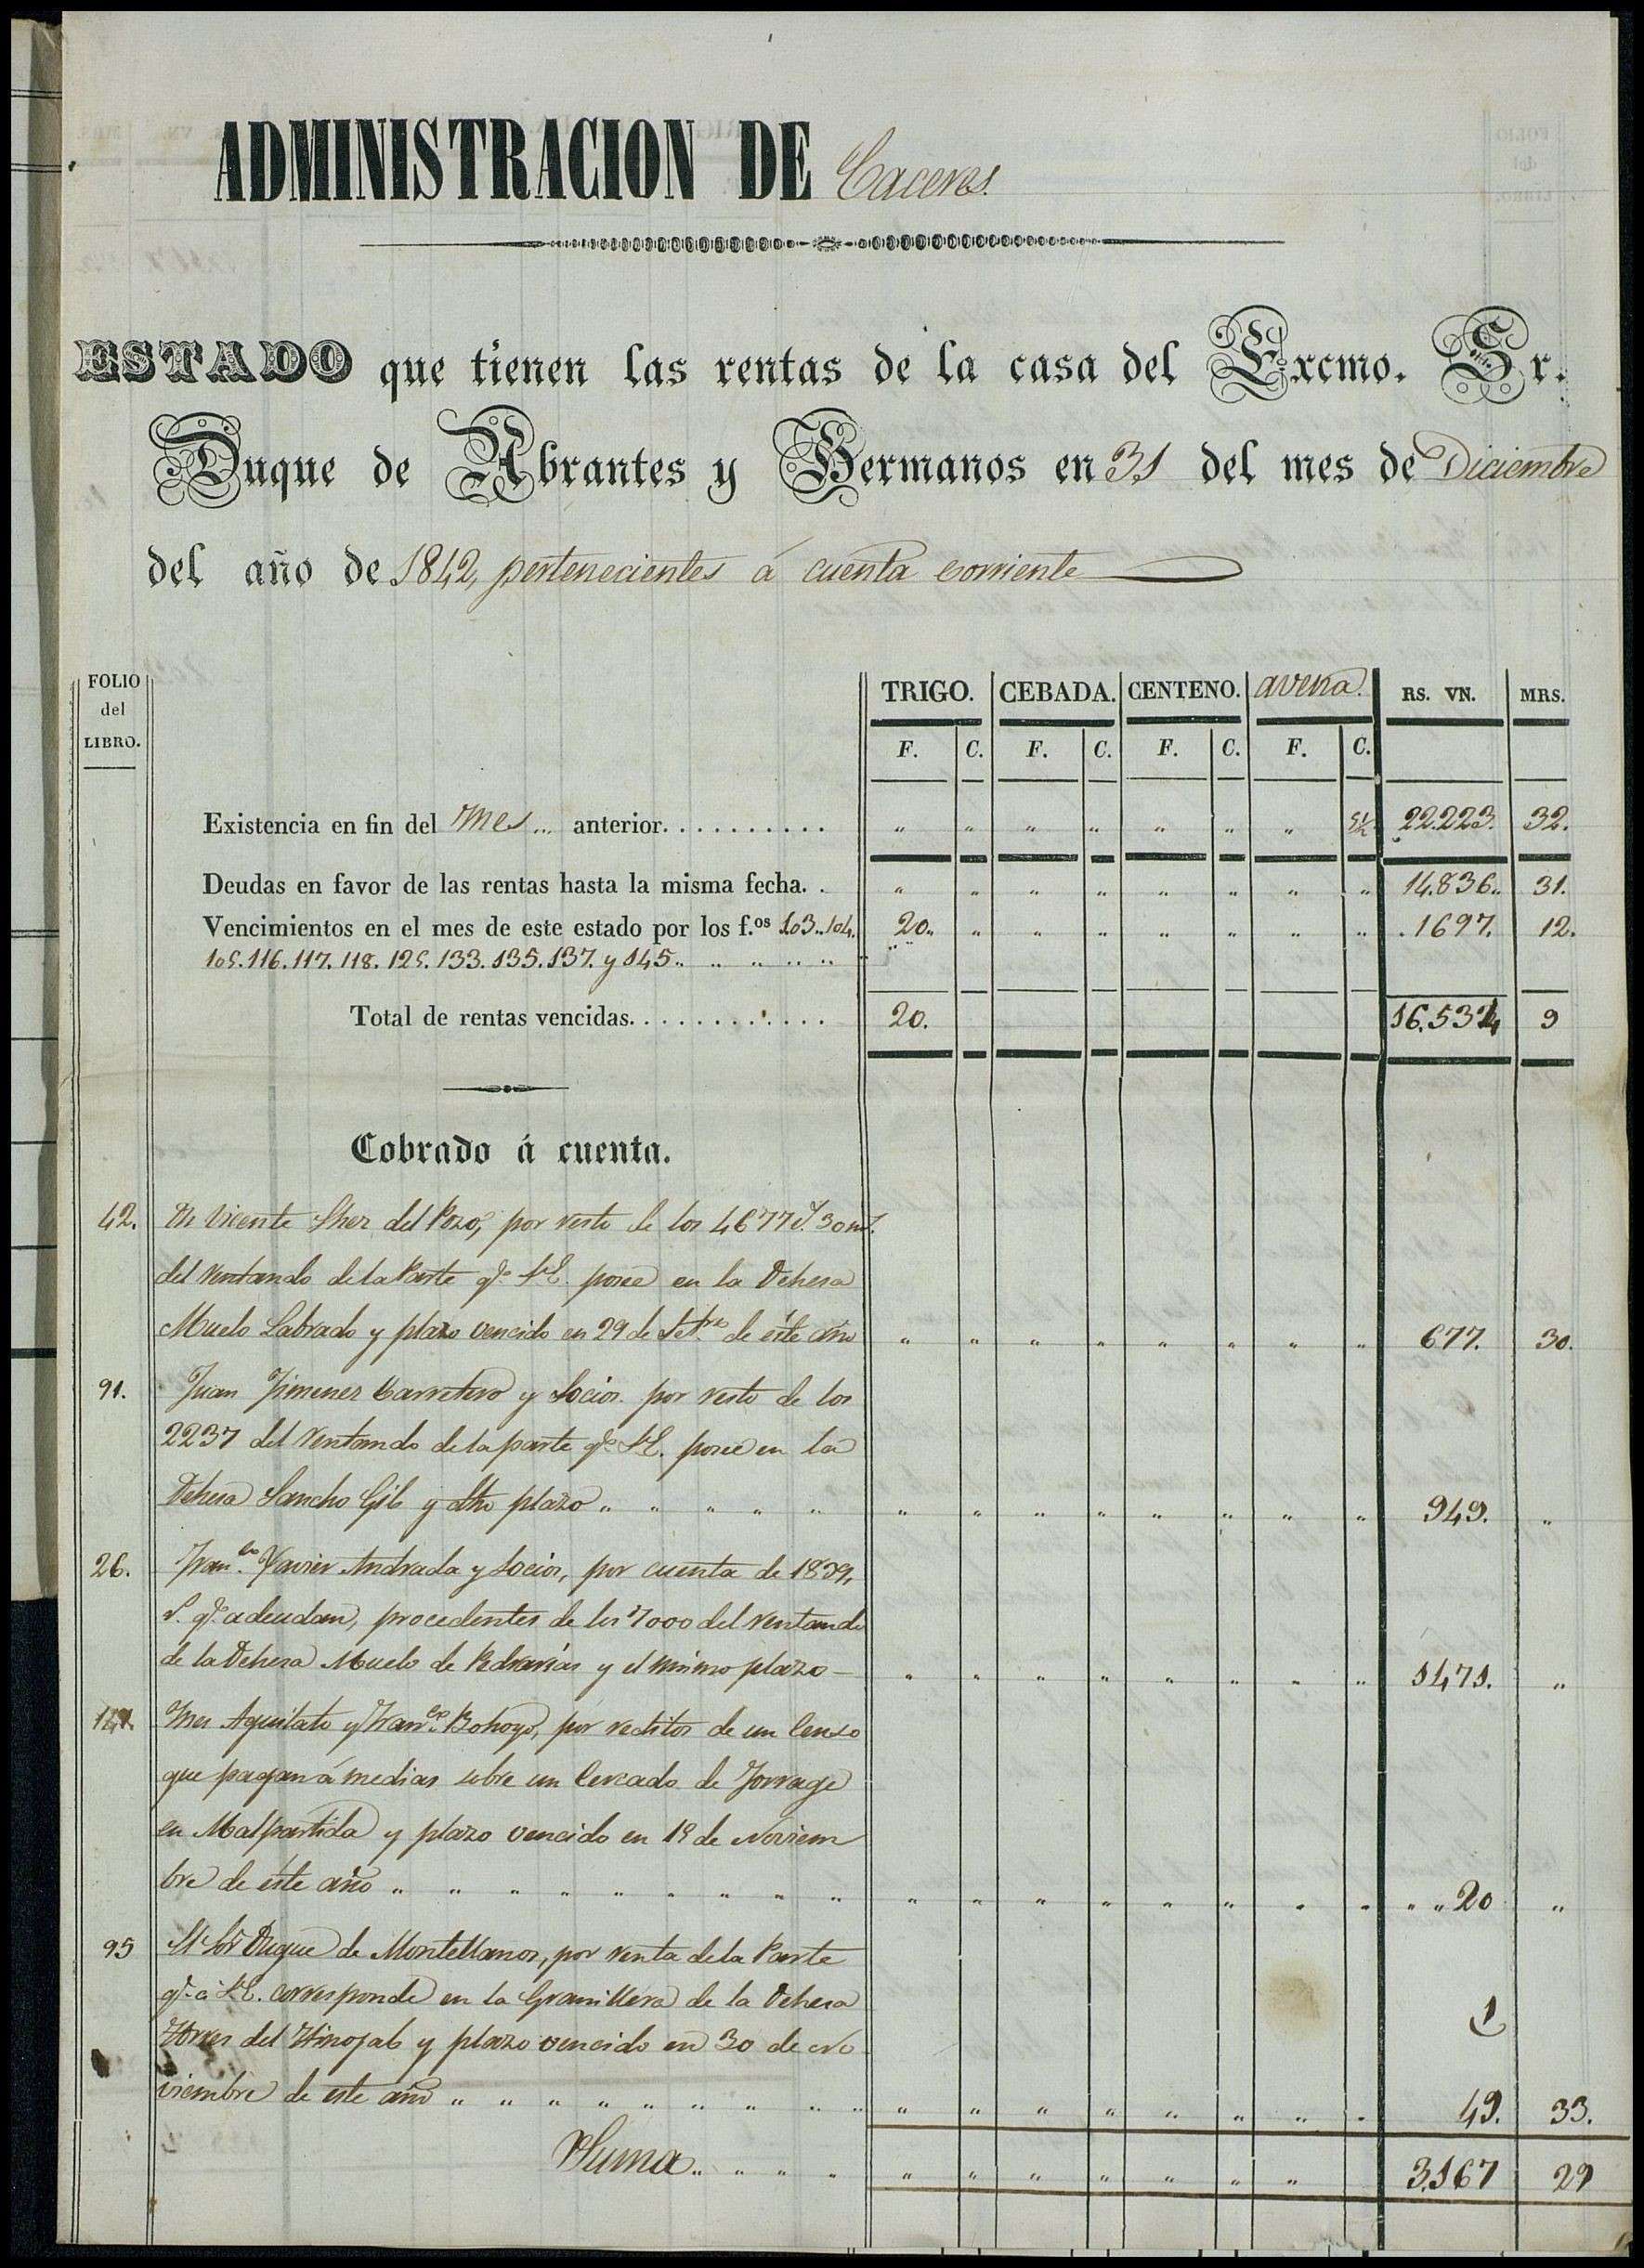 ADMINISTRACION DE Caceres.
ESTADO que tienen las rentas de la casa del Excmo. Sr.
Duque de Abrantes y Hermanos en 31 del mes de Diciembre
del año de 1842, pertenecientes á cuenta corriente
FOLIO del LIBRO. TRIGO. CEBADA. CENTENO. avena. RS. VN. MRS.
F. C. F. C. F. C. F. C.
Existencia en fin del mes... anterior. . . . . . . . . . " " " " " " " 22.223. 32.
Deudas en favor de las rentas hasta la misma fecha. . " " " " " " " " 14.836.. 31.
Vencimientos en el mes de este estado por los f.os 103..104. 20.. " " " " " " " .1697. 12.
105.116.117.118.125.133.135.137. y 145.. " " " " "
Total de rentas vencidas. . . . . . . . . . . . 20. 16.534 9
Cobrado á cuenta.
42. Dn Vicente Sher del Pozo, por resto de los 4677 r.s 30 m.s
del rentando de la Parte q.e S.E. posee en la Dehesa
Muelo Labrado y plazo vencido en 29 de Set.re de éste año " " " " " " " " 677. 30.
91. Juan Jimenez Carretero y Socios. por resto de los
2237 del rentando de la parte q.e S.E. posee en la
Dehesa Sancho Gil y dho plazo " " " " " " " " " " " " " 949. "
26. Fran.co Xavier Andrada y Socios, por cuenta de 1839,
r.s q.e adeudan, procedentes de los 7000 del rentando
de la Dehesa Muelo de Pedrarias y el mismo plazo — " " " " " " " " 1471. "
141. Ines Aguilato y Fran.co Bohoyo, por reditos de un Censo
que pagan á medias sobre un Cercado de Forrage
en Malpartida y plazo vencido en 19 de Noviem
bre de éste año " " " " " " " " " " " " " " " " " " " 20 "
95 El Sor Duque de Montellanos, por renta de la Parte
q.e á S.E. corresponde en la Granillera de la Dehesa
del Hinojal y plazo vencido en 30 de No
viembre de este año " " " " " " " " " " " " " " " " " 49. 33.
Suma.. " " " " " " " " " " 3.167 29